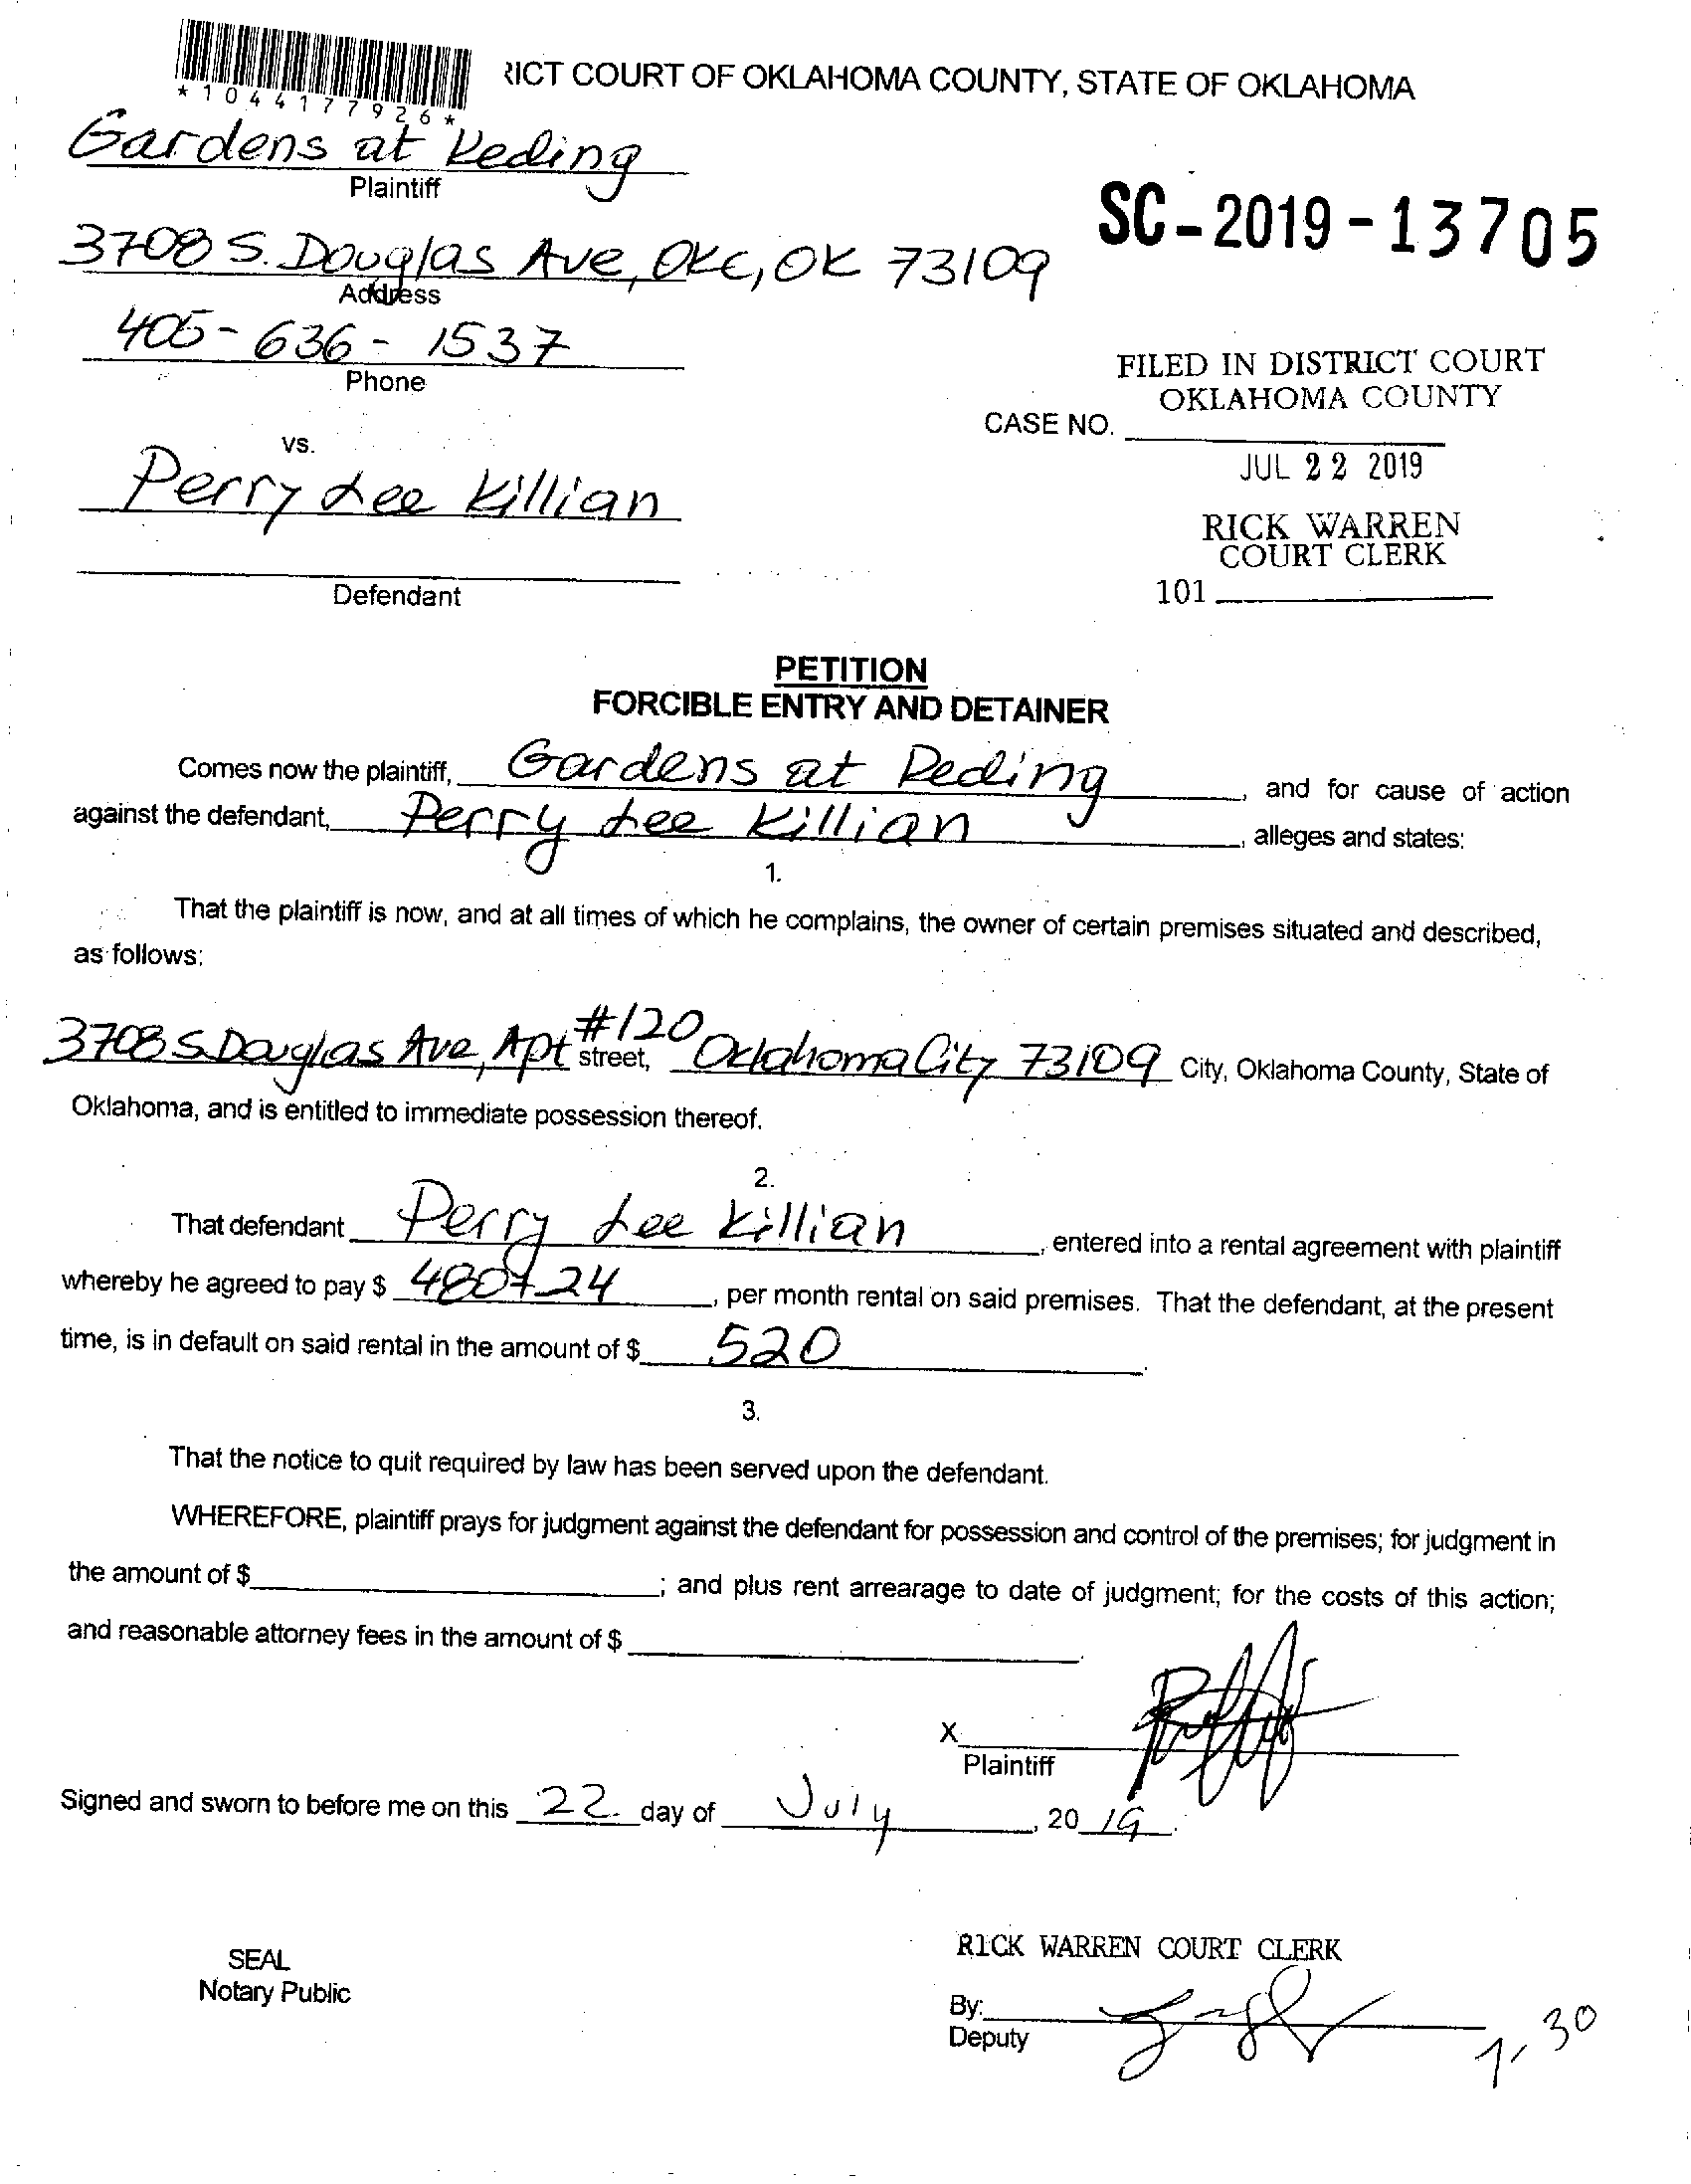 RICT COURT OF OKLAHOMA COUNTY, STATE OF OKLAHOMA
*1044177926*
Gardens at Reding
Plaintiff
SC-2019-13705
3708 S. Douglas Ave, OKC, OK 73109
Address
405-636-1537
Phone
FILED IN DISTRICT COURT
OKLAHOMA COUNTY
CASE NO.
vs.
JUL 22 2019
Perry Lee Killian
RICK WARREN
COURT CLERK
Defendant
101
PETITION
FORCIBLE ENTRY AND DETAINER
Comes now the plaintiff, Gardens at Reding, and for cause of action
against the defendant, Perry Lee Killian, alleges and states:
1.
That the plaintiff is now, and at all times of which he complains, the owner of certain premises situated and described,
as follows:
3708 S. Douglas Ave, Apt #120 street, Oklahoma City 73109 City, Oklahoma County, State of
Oklahoma, and is entitled to immediate possession thereof.
2.
That defendant Perry Lee Killian, entered into a rental agreement with plaintiff
whereby he agreed to pay $ 480+24, per month rental on said premises. That the defendant, at the present
time, is in default on said rental in the amount of $ 520.
3.
That the notice to quit required by law has been served upon the defendant.
WHEREFORE, plaintiff prays for judgment against the defendant for possession and control of the premises; for judgment in
the amount of $ ; and plus rent arrearage to date of judgment; for the costs of this action;
and reasonable attorney fees in the amount of $ .
X
Plaintiff
Signed and sworn to before me on this 22 day of July, 2019.
RICK WARREN COURT CLERK
SEAL
Notary Public
By:
Deputy
1, 30